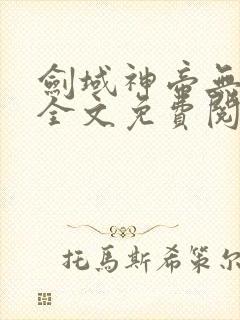 劍域神帝無
全文免費閱
托馬斯希策尔